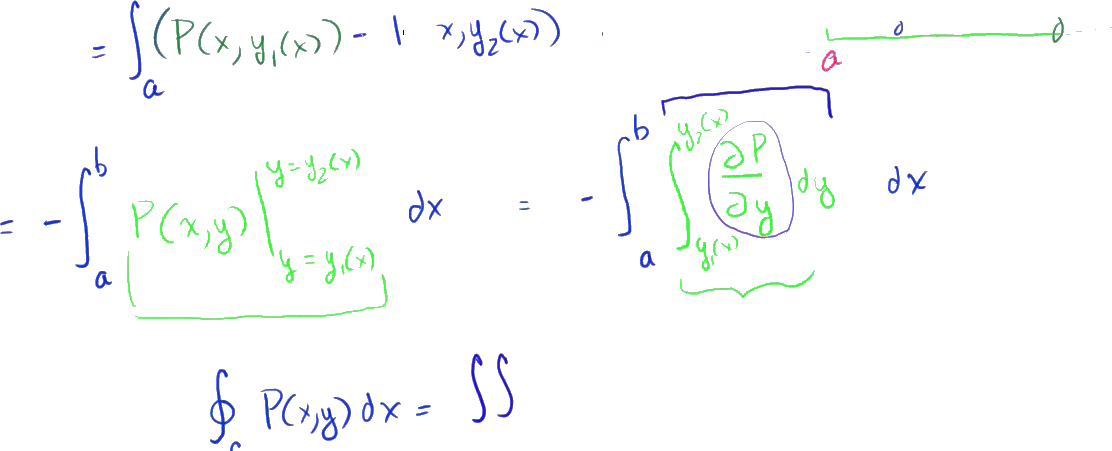 = ∫_a (P(x, y₁(x)) - x, y₂(x))
a
= - ∫_a^b P(x,y) |_{y = y₁(x)}^{y = y₂(x)} dx = - ∫_a^b ∫_{y₁(x)}^{y₂(x)} ∂P/∂y dy dx
∮ P(x,y) dx = ∬